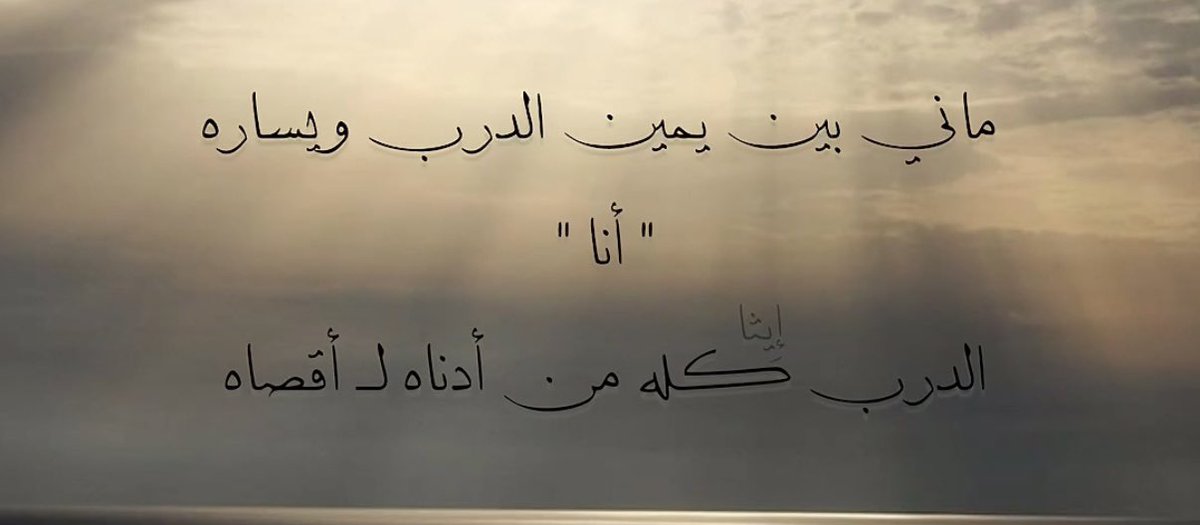 ماني بين يمين الدرب ويساره
" أنا "
إيثا
الدرب كله من أدناه لـ أقصاه